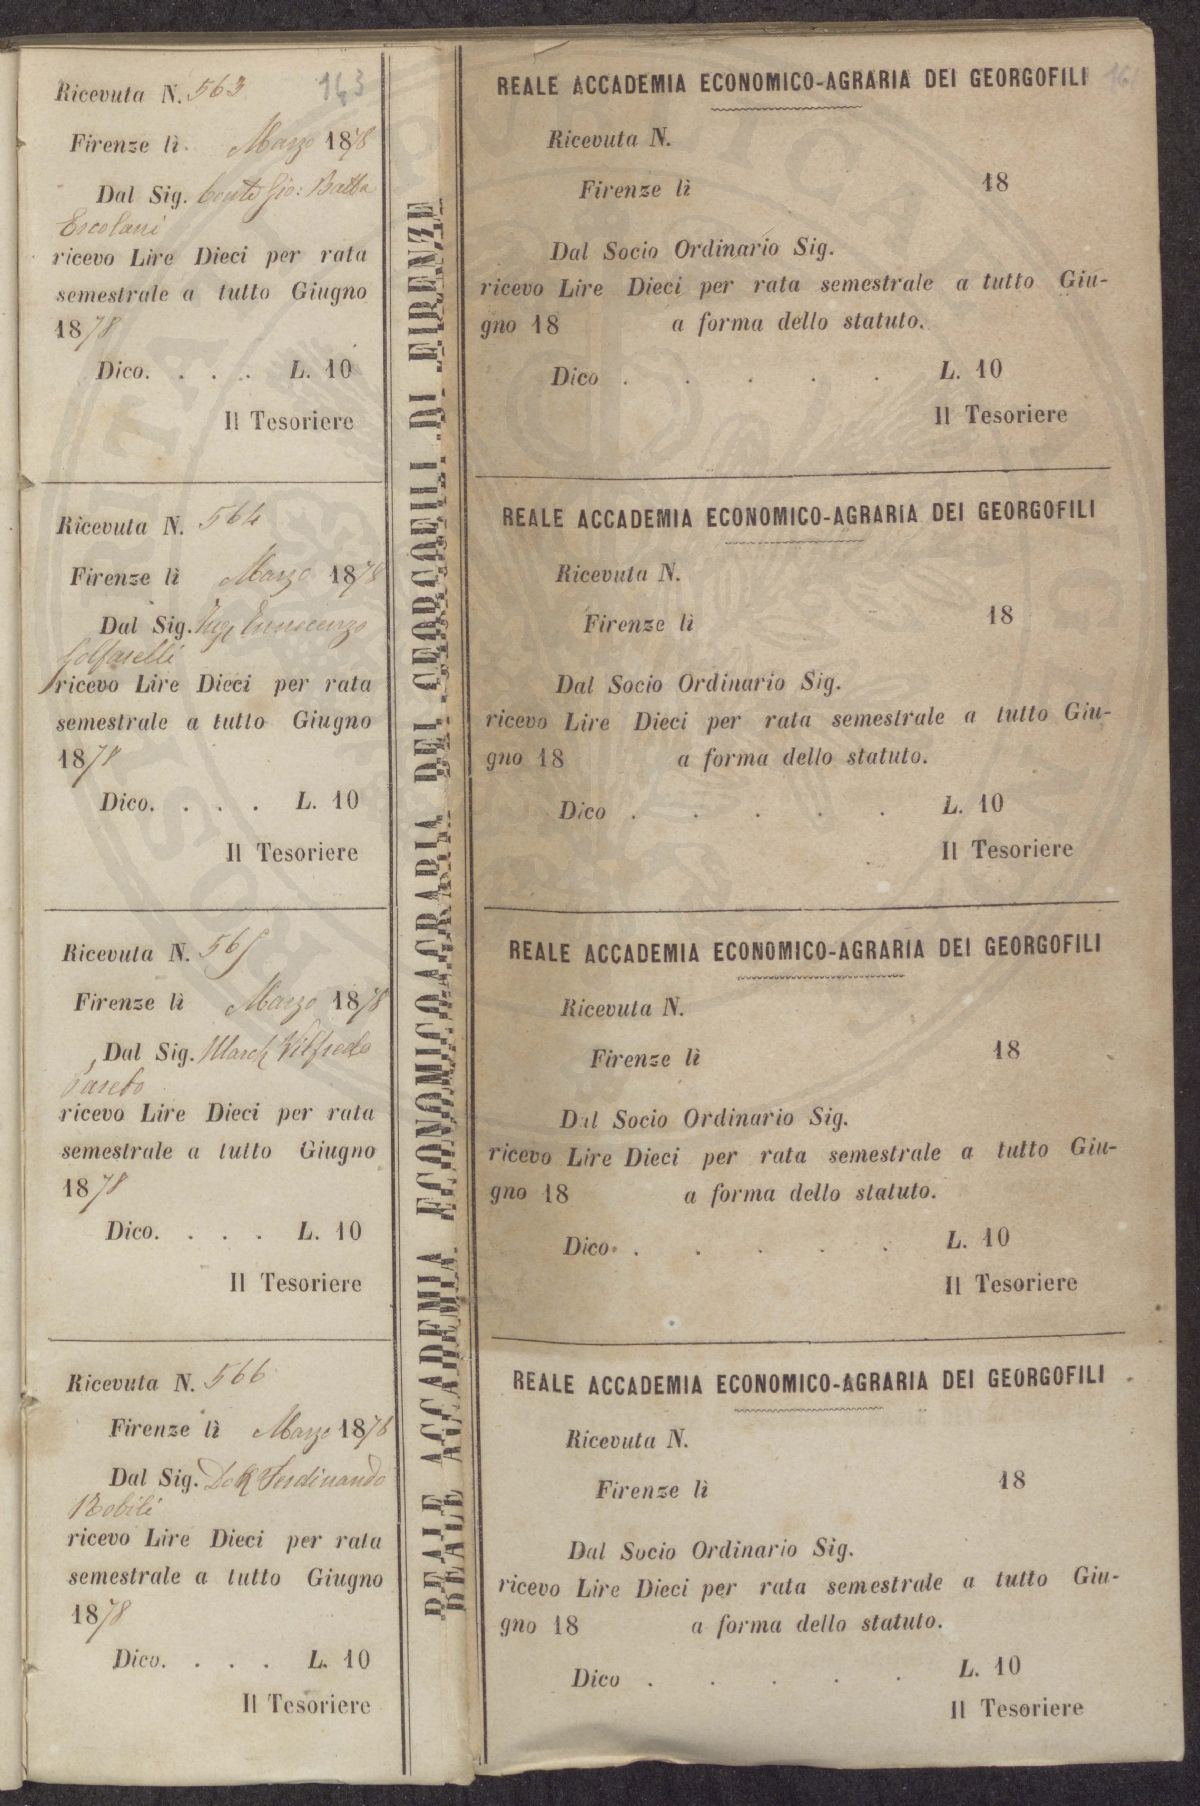 Ricevuta N. 563
143
Firenze lì Marzo 1878
Dal Sig. Conte Gio: Batta
Ercolani
ricevo Lire Dieci per rata
semestrale a tutto Giugno
1878
Dico. . . . L. 10
Il Tesoriere
Ricevuta N. 564
Firenze lì Marzo 1878
Dal Sig. Ing. Innocenzo
Golfarelli
ricevo Lire Dieci per rata
semestrale a tutto Giugno
1878
Dico. . . . L. 10
Il Tesoriere
Ricevuta N. 565
Firenze lì Marzo 1878
Dal Sig. March Vilfredo
Pareto
ricevo Lire Dieci per rata
semestrale a tutto Giugno
1878
Dico. . . . L. 10
Il Tesoriere
Ricevuta N. 566
Firenze lì Marzo 1878
Dal Sig. Ferdinando
ricevo Lire Dieci per rata
semestrale a tutto Giugno
1878
Dico. . . . L. 10
Il Tesoriere
REALE ACCADEMIA ECONOMICO AGRARIA DEI GEORGOFILI DI FIRENZE
REALE ACCADEMIA ECONOMICO-AGRARIA DEI GEORGOFILI
Ricevuta N.
Firenze lì 18
Dal Socio Ordinario Sig.
ricevo Lire Dieci per rata semestrale a tutto Giu-
gno 18 a forma dello statuto.
Dico . . . . . L. 10
Il Tesoriere
REALE ACCADEMIA ECONOMICO-AGRARIA DEI GEORGOFILI
Ricevuta N.
Firenze lì 18
Dal Socio Ordinario Sig.
ricevo Lire Dieci per rata semestrale a tutto Giu-
gno 18 a forma dello statuto.
Dico . . . . . L. 10
Il Tesoriere
REALE ACCADEMIA ECONOMICO-AGRARIA DEI GEORGOFILI
Ricevuta N.
Firenze lì 18
Dal Socio Ordinario Sig.
ricevo Lire Dieci per rata semestrale a tutto Giu-
gno 18 a forma dello statuto.
Dico . . . . . L. 10
Il Tesoriere
REALE ACCADEMIA ECONOMICO-AGRARIA DEI GEORGOFILI
Ricevuta N.
Firenze lì 18
Dal Socio Ordinario Sig.
ricevo Lire Dieci per rata semestrale a tutto Giu-
gno 18 a forma dello statuto.
Dico . . . . . L. 10
Il Tesoriere